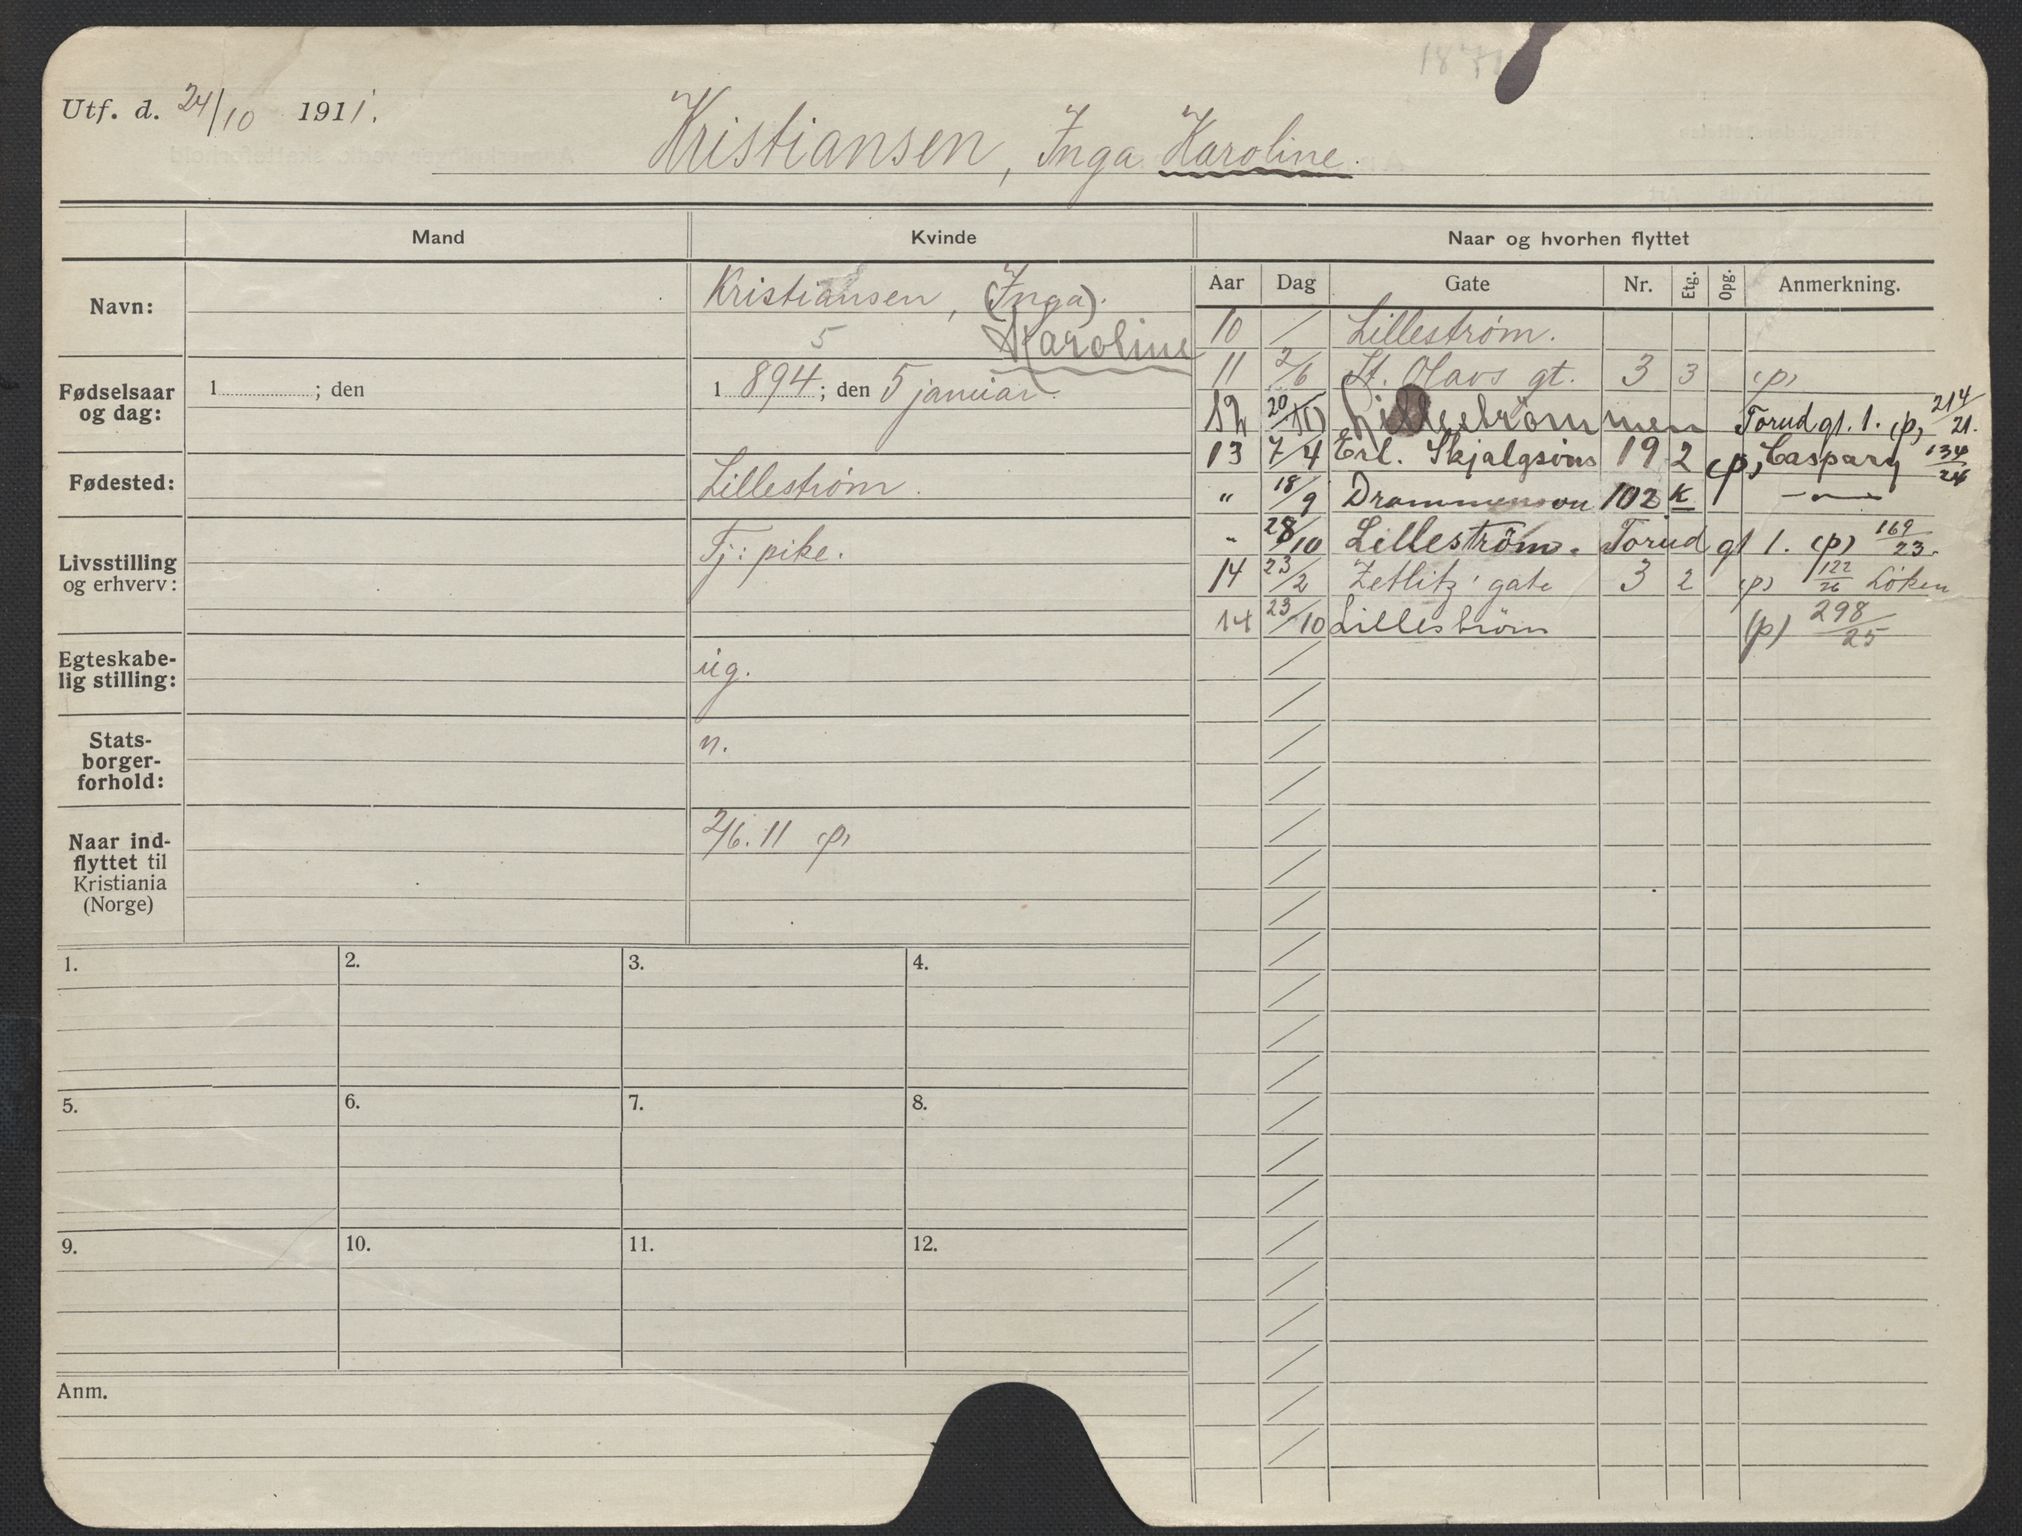 Utf. d. 24/10 1911.
Kristiansen, Inga Karoline.
Mand
Kvinde
Naar og hvorhen flyttet
Navn:
Kristiansen, (Inga).
5
Karoline
Fødselsaar
og dag:
1 ; den
1 894 ; den 5 januar.
Fødested:
Lillestrøm.
Livsstilling
og erhverv:
Tj: pike.
Egteskabe-
lig stilling:
ug.
Stats-
borger-
forhold:
n.
Naar ind-
flyttet til
Kristiania
(Norge)
2/6. 11 (p)
Aar Dag Gate Nr. Etg. Opg. Anmerkning.
10 / Lillestrøm.
11 2/6 St. Olavs gt. 3 3 (p)
12 20/10 Lillestrømmen Torud gt. 1. (p) 214/21.
13 7/4 Erl. Skjalgsøns 19 2 (p) Caspary 134/24
" 18/9 Drammensv 102 K — " —
" 28/10 Lillestrøm. Torud gt 1. (p) 169/23.
14 23/2 Zetlitz' gate 3 2 (p) 122/26 Löken
14 23/10 Lillestrøm (p) 298/25
1. 2. 3. 4.
5. 6. 7. 8.
9. 10. 11. 12.
Anm.